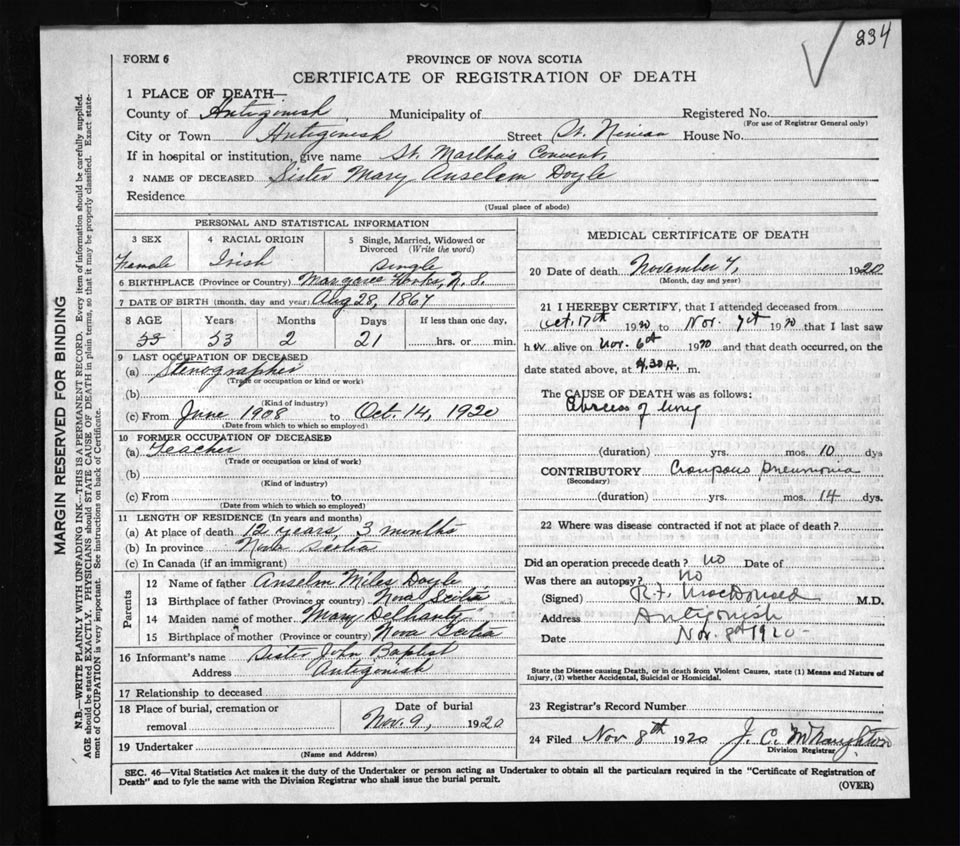 234
FORM 6
PROVINCE OF NOVA SCOTIA
CERTIFICATE OF REGISTRATION OF DEATH
1 PLACE OF DEATH—
County of Antigonish Municipality of Registered No.
(For use of Registrar General only)
City or Town Antigonish Street St. Ninian House No.
If in hospital or institution, give name St. Martha's Convent
2 NAME OF DECEASED Sister Mary Anselm Doyle
Residence
(Usual place of abode)
PERSONAL AND STATISTICAL INFORMATION
3 SEX 4 RACIAL ORIGIN 5 Single, Married, Widowed or Divorced (Write the word)
Female Irish Single
6 BIRTHPLACE (Province or Country) Margaree Forks, N. S.
7 DATE OF BIRTH (month, day and year) Aug 28, 1867
8 AGE Years Months Days If less than one day,
53 53 2 21 hrs. or min.
9 LAST OCCUPATION OF DECEASED
(a) Stenographer
(Trade or occupation or kind or work)
(b)
(Kind of industry)
(c) From June 1908 to Oct. 14, 1920
(Date from which to which so employed)
10 FORMER OCCUPATION OF DECEASED
(a) Teacher
(Trade or occupation or kind of work)
(b)
(Kind of industry)
(c) From to
(Date from which to which so employed)
11 LENGTH OF RESIDENCE (In years and months)
(a) At place of death 12 years, 3 months
(b) In province Nova Scotia
(c) In Canada (if an immigrant)
Parents
12 Name of father Anselm Miles Doyle
13 Birthplace of father (Province or country) Nova Scotia
14 Maiden name of mother Mary Delhanty
15 Birthplace of mother (Province or country) Nova Scotia
16 Informant's name Sister John Baptist
Address Antigonish
17 Relationship to deceased
18 Place of burial, cremation or removal Date of burial
Nov. 9, 1920
19 Undertaker
(Name and Address)
MEDICAL CERTIFICATE OF DEATH
20 Date of death November 7, 1920
(Month, day and year)
21 I HEREBY CERTIFY, that I attended deceased from
Oct. 17th 1920 to Nov. 7th 1920 that I last saw
her alive on Nov. 6th 1920 and that death occurred, on the
date stated above, at 4.30 A. m.
The CAUSE OF DEATH was as follows:
Abscess of lung
(duration) yrs. mos. 10 dys
CONTRIBUTORY Croupous Pneumonia
(Secondary)
(duration) yrs. mos. 14 dys.
22 Where was disease contracted if not at place of death?
Did an operation precede death? No Date of
Was there an autopsy? No
(Signed) R. F. MacDonald M.D.
Address Antigonish
Date Nov. 8th 1920
State the Disease causing Death, or in death from Violent Causes, state (1) Means and Nature of
Injury, (2) whether Accidental, Suicidal or Homicidal.
23 Registrar's Record Number
24 Filed Nov 8th 1920 J. C. McNaughton
Division Registrar
SEC. 46—Vital Statistics Act makes it the duty of the Undertaker or person acting as Undertaker to obtain all the particulars required in the "Certificate of Registration of
Death" and to fyle the same with the Division Registrar who shall issue the burial permit.
(OVER)
MARGIN RESERVED FOR BINDING
N.B.—WRITE PLAINLY WITH UNFADING INK—THIS IS A PERMANENT RECORD. Every item of information should be carefully supplied.
AGE should be stated EXACTLY. PHYSICIANS should STATE CAUSE OF DEATH in plain terms, so that it may be properly classified. Exact state-
ment of OCCUPATION is very important. See instructions on back of Certificate.